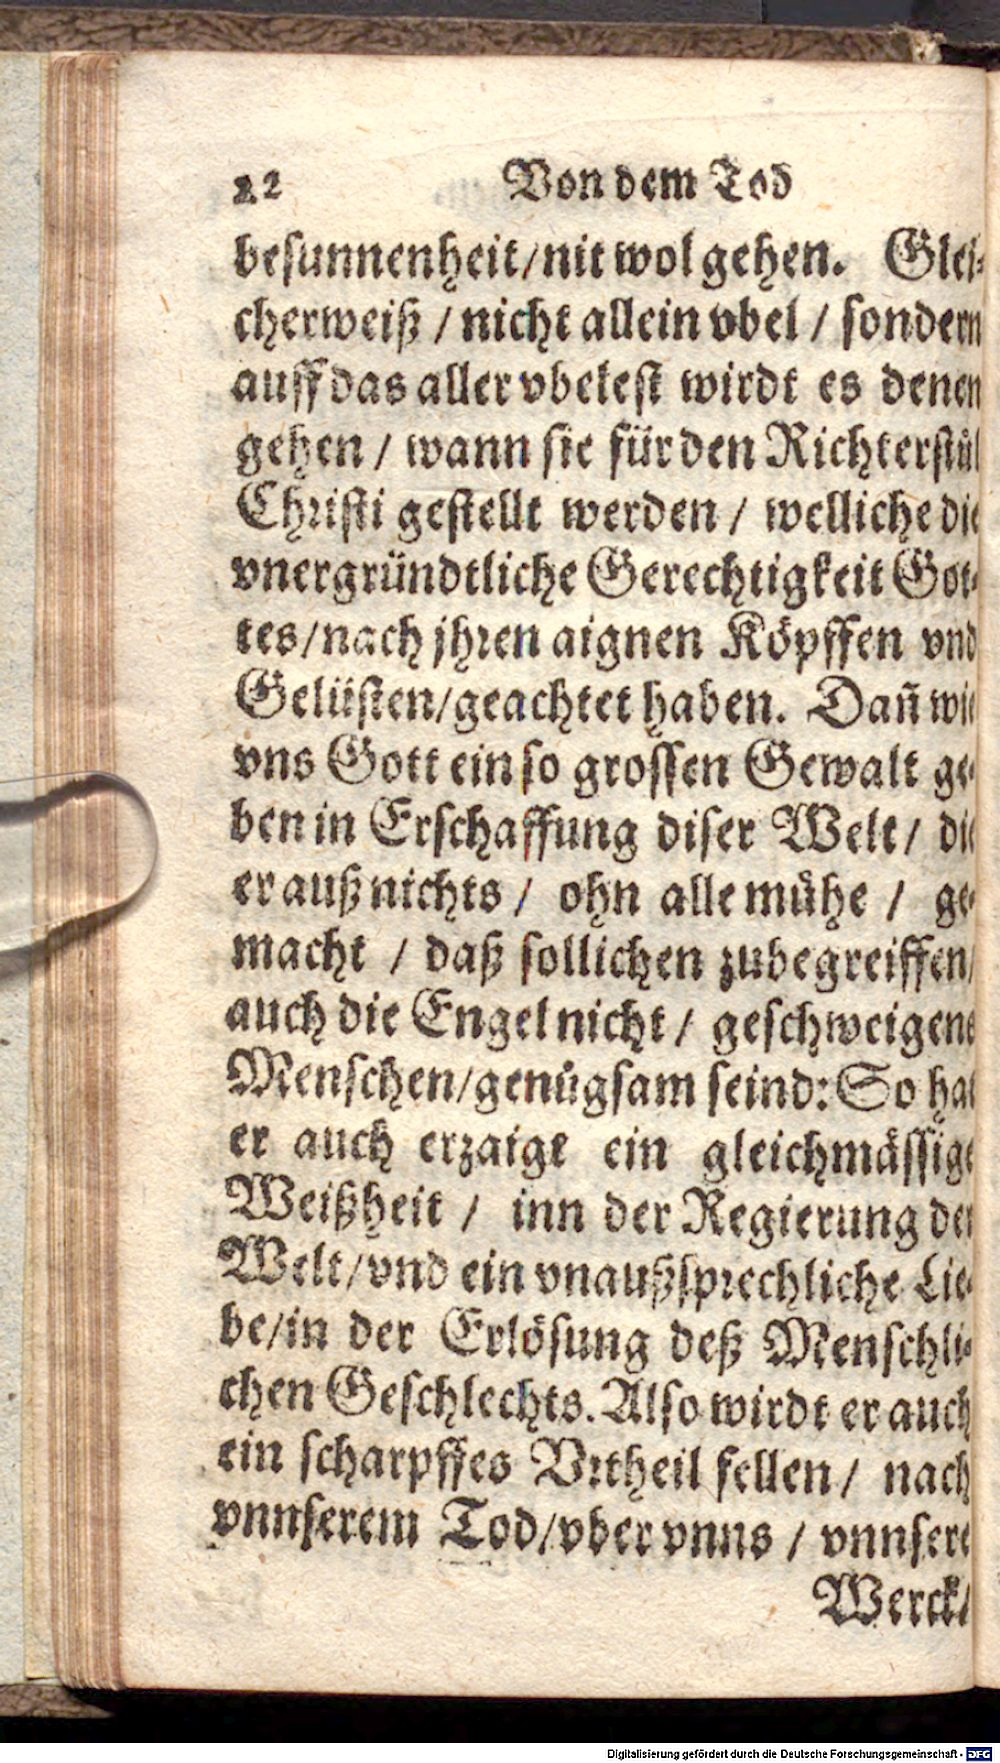 22 Von dem Tod
besunnenheit/nit wol gehen. Glei-
cherweiß / nicht allein vbel / sondern
auff das aller vbelest wirdt es denen
gehen / wann sie für den Richterstůl
Christi gestellt werden / welliche die
vnergründtliche Gerechtigkeit Got-
tes/nach jhren aignen Köpffen vnd
Gelüsten/geachtet haben. Dañ wie
vns Gott ein so grossen Gewalt ge-
ben in Erschaffung diser Welt/ die
er auß nichts / ohn alle mühe / ge-
macht / daß sollichen zubegreiffen/
auch die Engel nicht / geschweigens
Menschen/genůgsam seind: So hat
er auch erzaigt ein gleichmässige
Weißheit / inn der Regierung der
Welt/vnd ein vnaußsprechliche Lie-
be/in der Erlösung deß Menschli-
chen Geschlechts. Also wirdt er auch
ein scharpffes Vrtheil fellen / nach
vnnserem Tod/vber vnns / vnnsere
Werck/
Digitalisierung gefördert durch die Deutsche Forschungsgemeinschaft - DFG